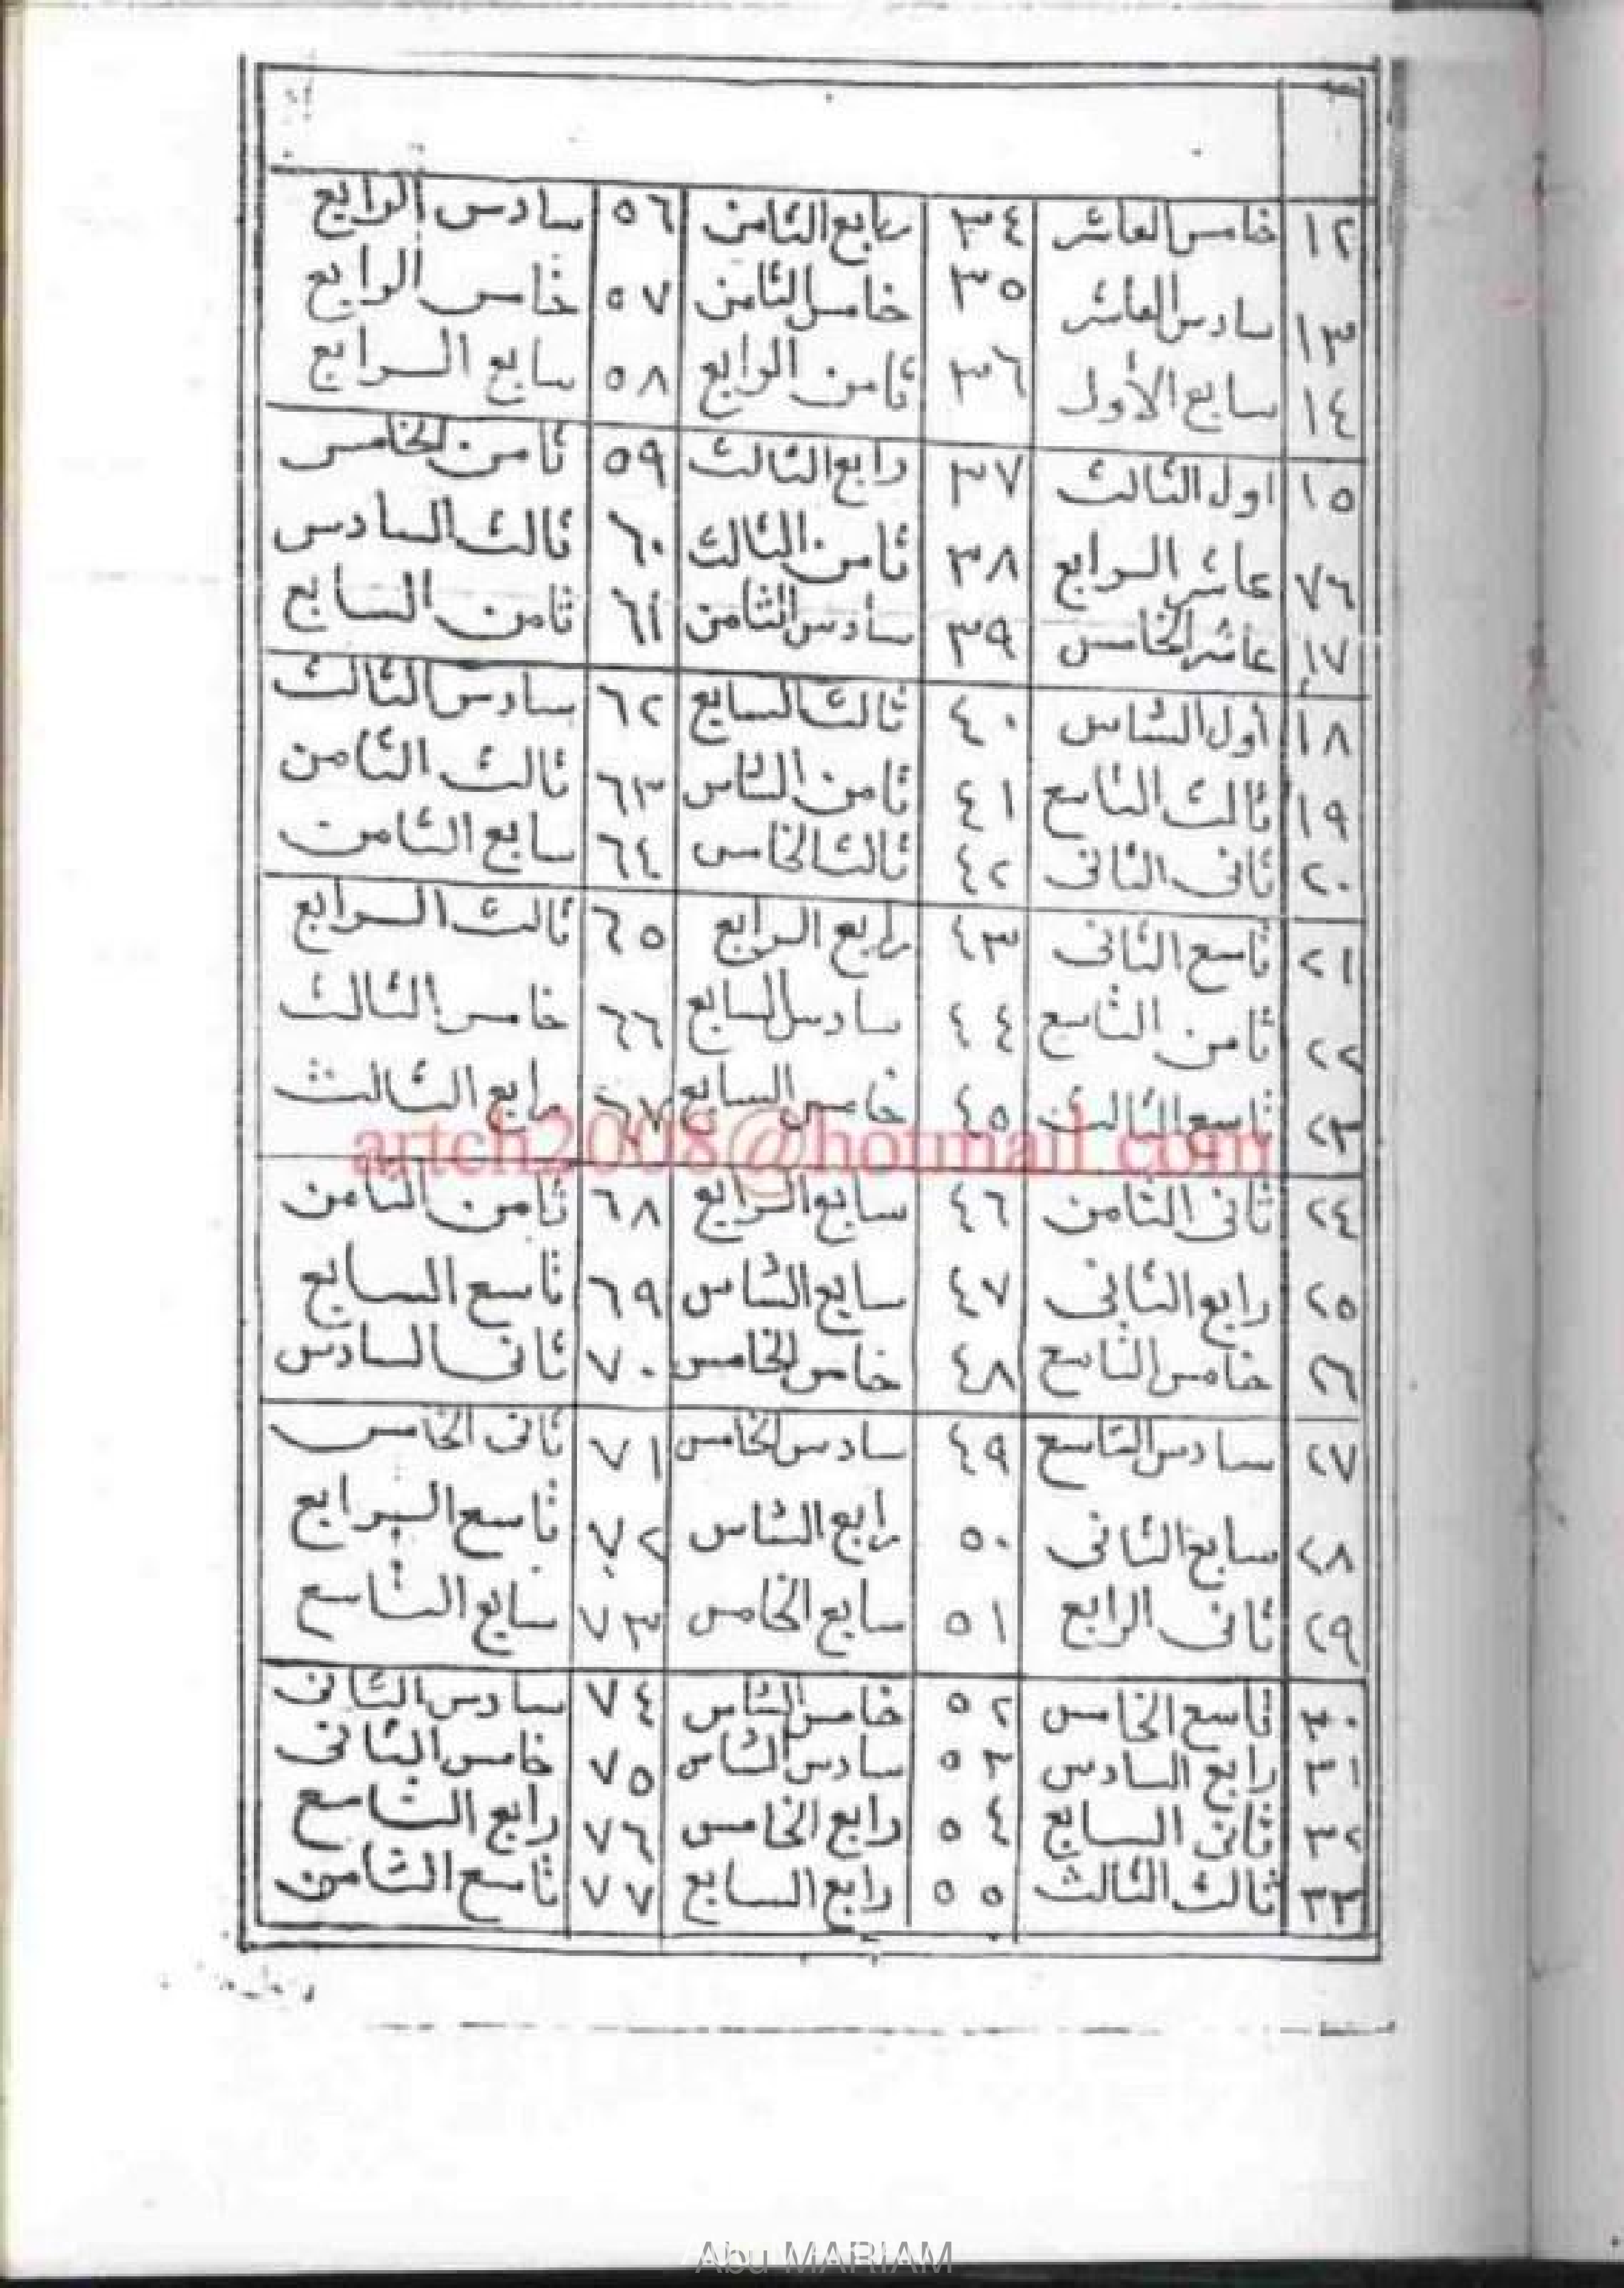 ١٢ خامس العاشر ٣٤ رابع الثامن ٥٦ سادس الرابع
١٣ سادس العاشر ٣٥ خامس الثامن ٥٧ خامس الرابع
١٤ سابع الأول ٣٦ ثامن الرابع ٥٨ سابع الرابع
١٥ اول الثالث ٣٧ رابع الثالث ٥٩ ثامن الخامس
٧٦ عاشر الرابع ٣٨ ثامن الثالث ٦٠ ثالث السادس
١٧ عاشر الخامس ٣٩ سادس الثامن ٦١ ثامن السابع
١٨ أول السادس ٤٠ ثالث السابع ٦٢ سادس الثالث
١٩ ثالث التاسع ٤١ ثامن السادس ٦٣ ثالث الثامن
٢٠ ثانى الثانى ٤٢ ثالث الخامس ٦٤ سابع الثامن
٢١ تاسع الثانى ٤٣ رابع الرابع ٦٥ ثالث الرابع
٢٢ ثامن التاسع ٤٤ سادس السابع ٦٦ خامس الثالث
٢٣ تاسع الثالث ٤٥ خامس السابع ٦٧ رابع الثالث
artch2008@hotmail.com
٢٤ ثانى الثامن ٤٦ سابع الرابع ٦٨ ثامن الثامن
٢٥ رابع الثانى ٤٧ سابع السادس ٦٩ تاسع السابع
٢٦ خامس التاسع ٤٨ خامس الخامس ٧٠ ثانى السادس
٢٧ سادس التاسع ٤٩ سادس الخامس ٧١ ثانى الخامس
٢٨ سابع الثانى ٥٠ رابع السادس ٧٢ تاسع الرابع
٢٩ ثانى الرابع ٥١ سابع الخامس ٧٣ سابع التاسع
٣٠ تاسع الخامس ٥٢ خامس السادس ٧٤ سادس الثانى
٣١ رابع السادس ٥٣ سادس السادس ٧٥ خامس الثانى
٣٢ ثانى السابع ٥٤ رابع الخامس ٧٦ رابع التاسع
٣٣ ثالث الثالث ٥٥ رابع السابع ٧٧ تاسع الثامن
Abu MARIAM